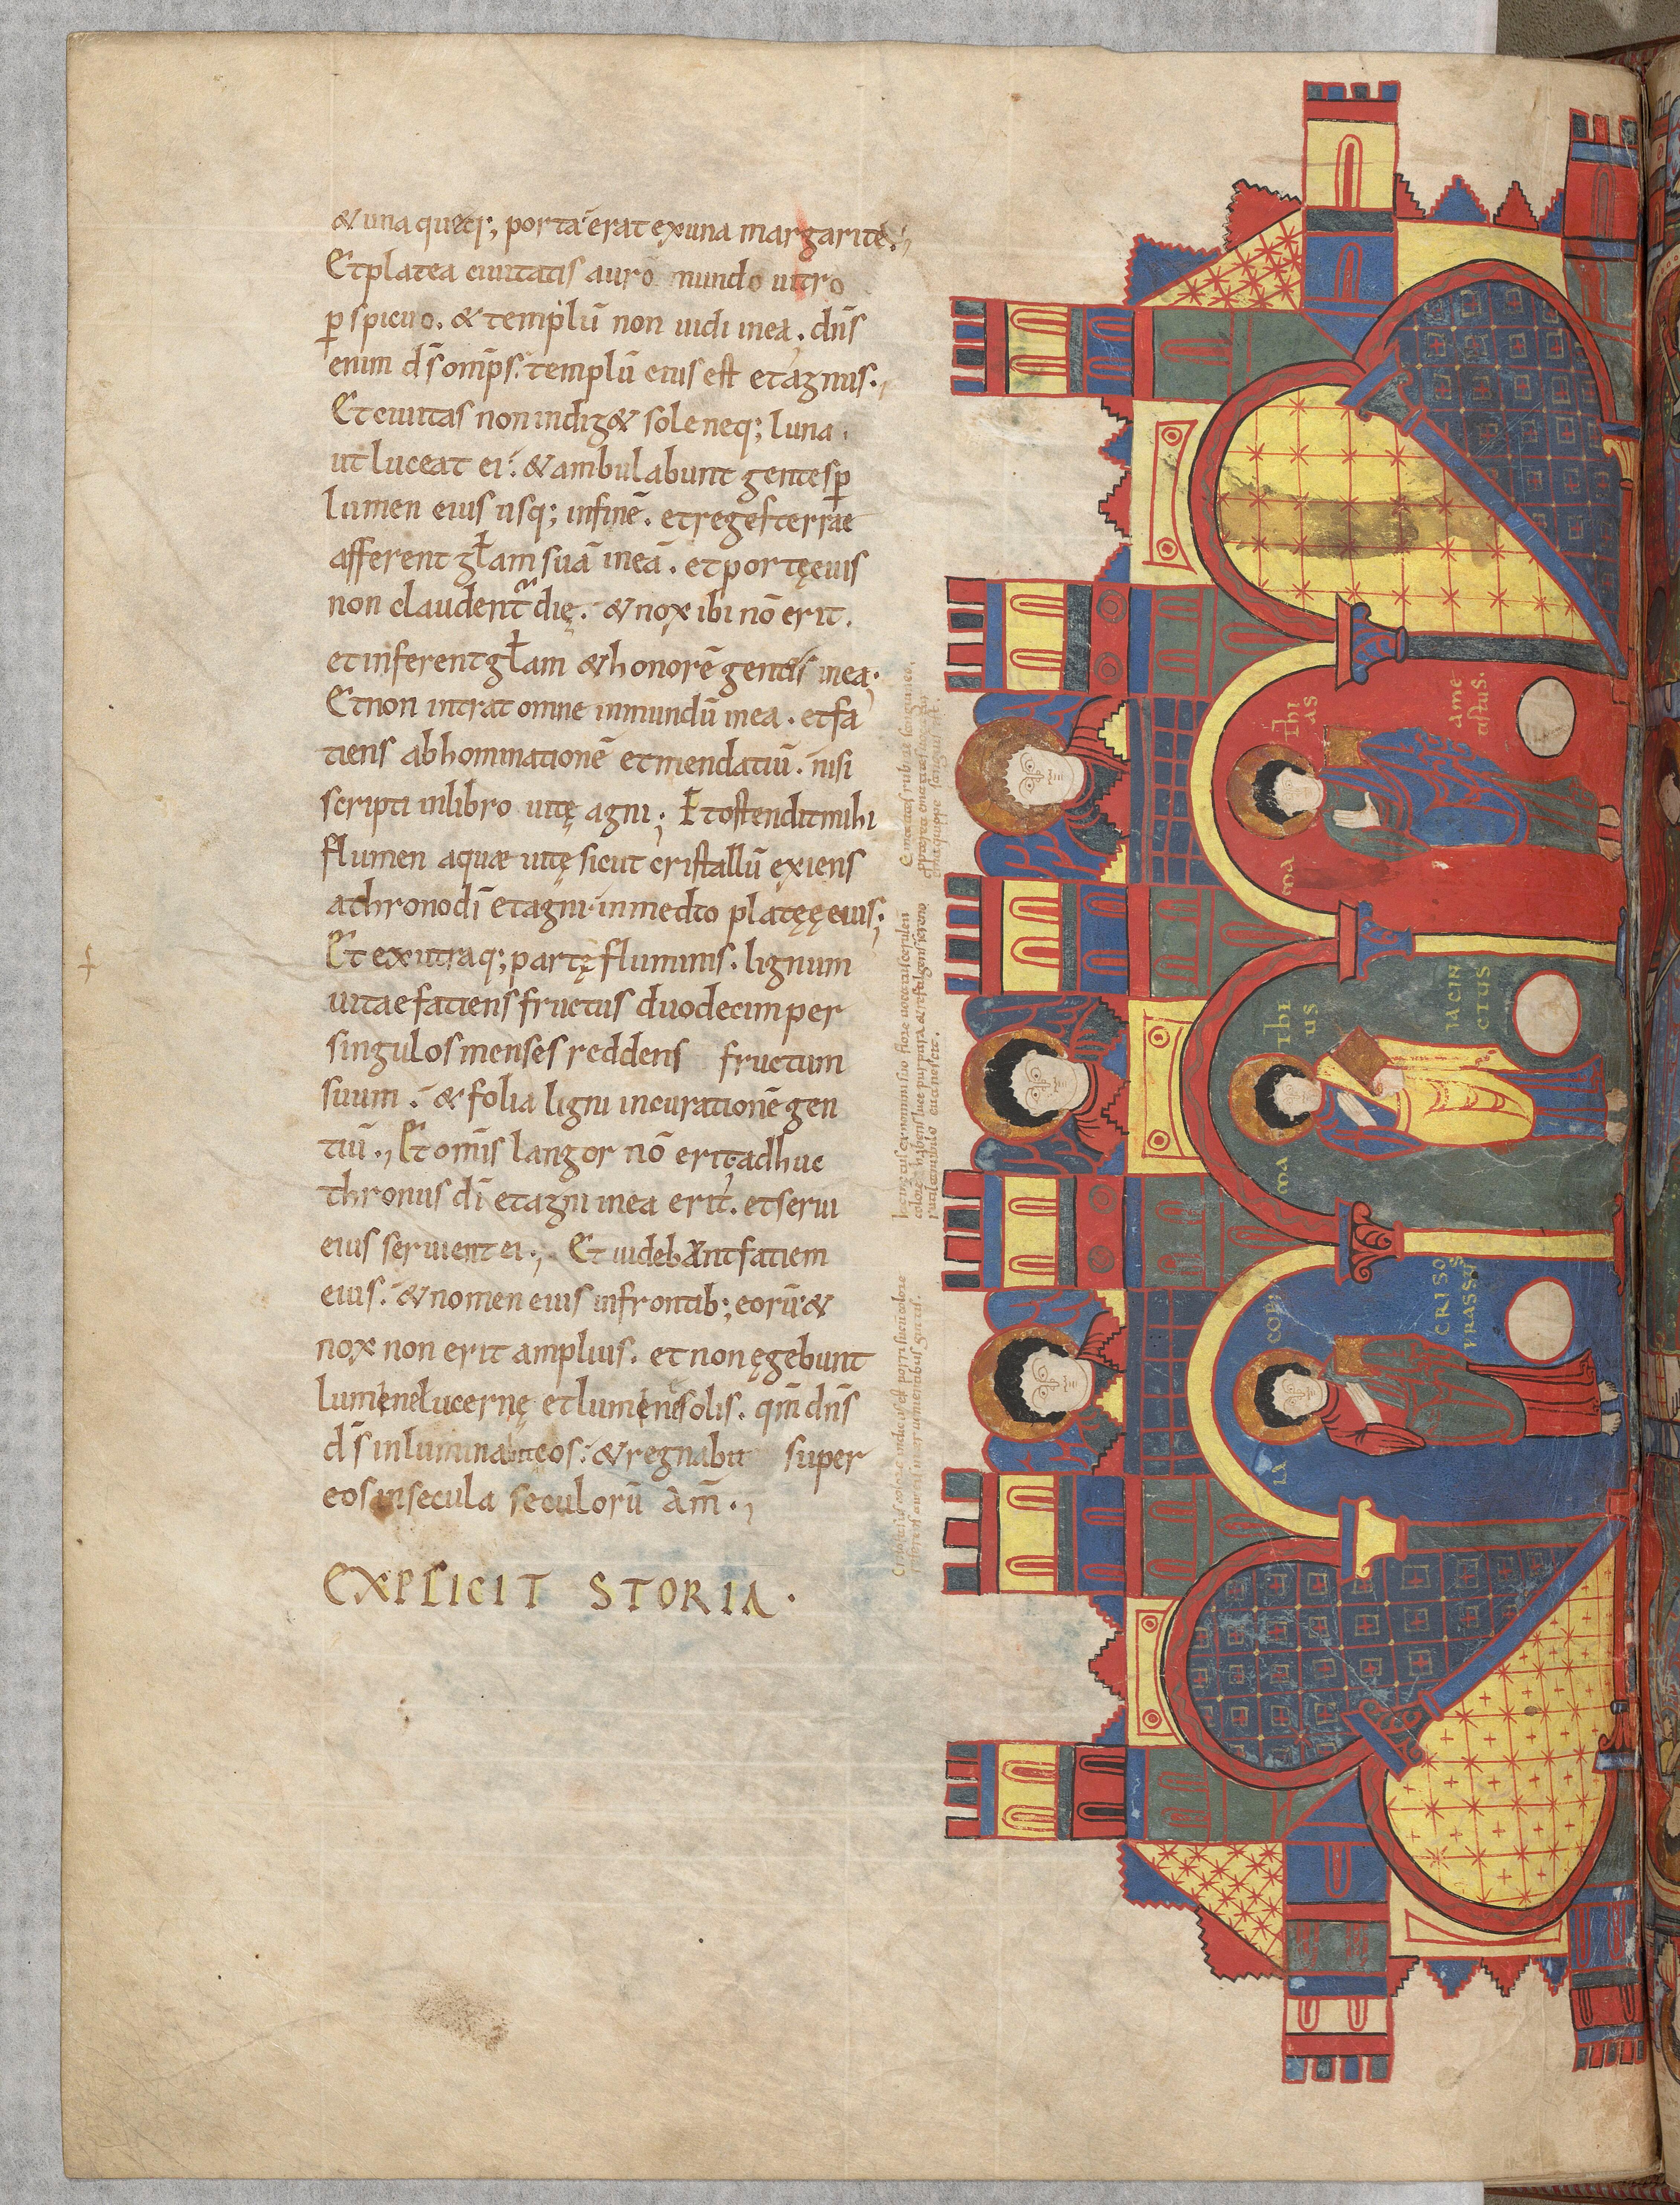 & una queq; porta erat ex una margarite.,
Et platea ciuitatis auro mundo uitro
p spicuo. & templū non uidi inea. dn̄s
enim d̄s omp̄s. templū eius est et agnus.,
Et ciuitas non indig& sole neq; luna.
ut luceat ei. & ambulabunt gentes p
lumen eius usq; infinē. et reges terrae
afferent gl̄am suā ineā. et portę eius
non claudent die. & nox ibi nō erit.
et inferent gl̄am & honorē gentis inea.
Et non intrat omne inmundū inea. et fa
tiens abhominationē et mendatiū. nisi
scripti inlibro uitę agni; Et ostendit mihi
flumen aquæ uitę sicut cristallū exiens
a throno dī et agni. in medio platęę eius;
Et ex utraq; partę fluminis. lignum
uitae fatiens fructus duodecim per
singulos menses reddens fructum
suum. & folia ligni incurationē gen
tiū., Et omīs langor nō erit adhuc
thronus dī et agni inea erit. et serui
eius seruient ei., Et uidebant fatiem
eius. & nomen eius infrontib; eorū &
nox non erit amplius. et non ęgebunt
lumen lucernę et lumen solis. qm̄ dn̄s
d̄s inluminabit eos. & regnabit super
eos insecula seculorū Am̄.,
EXPLICIT STORIA.
ma thi
as
ame
tistus.
ma thi
us
IACIN
CTUS
CRISO
PRASSUS